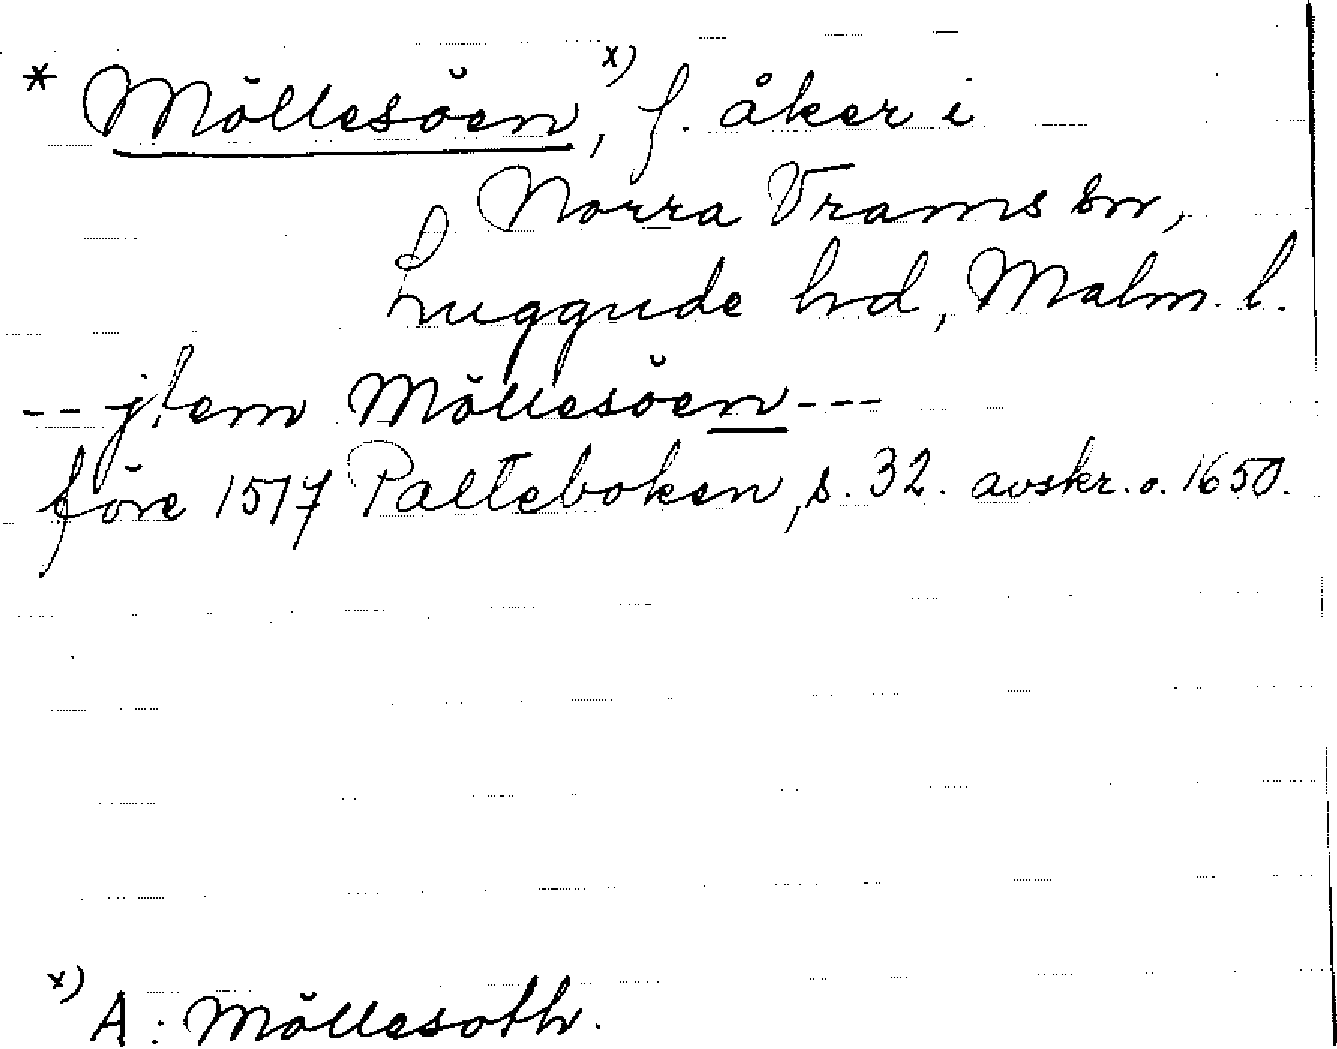 * Möllesöen, x) f. åker i
Norra Vrams sn,
Luggude hd, Malm. l.
-- jtem Möllesöen ---
före 1517 Palteboken, s. 32. avskr. o. 1650.
x) A: Möllesoth.